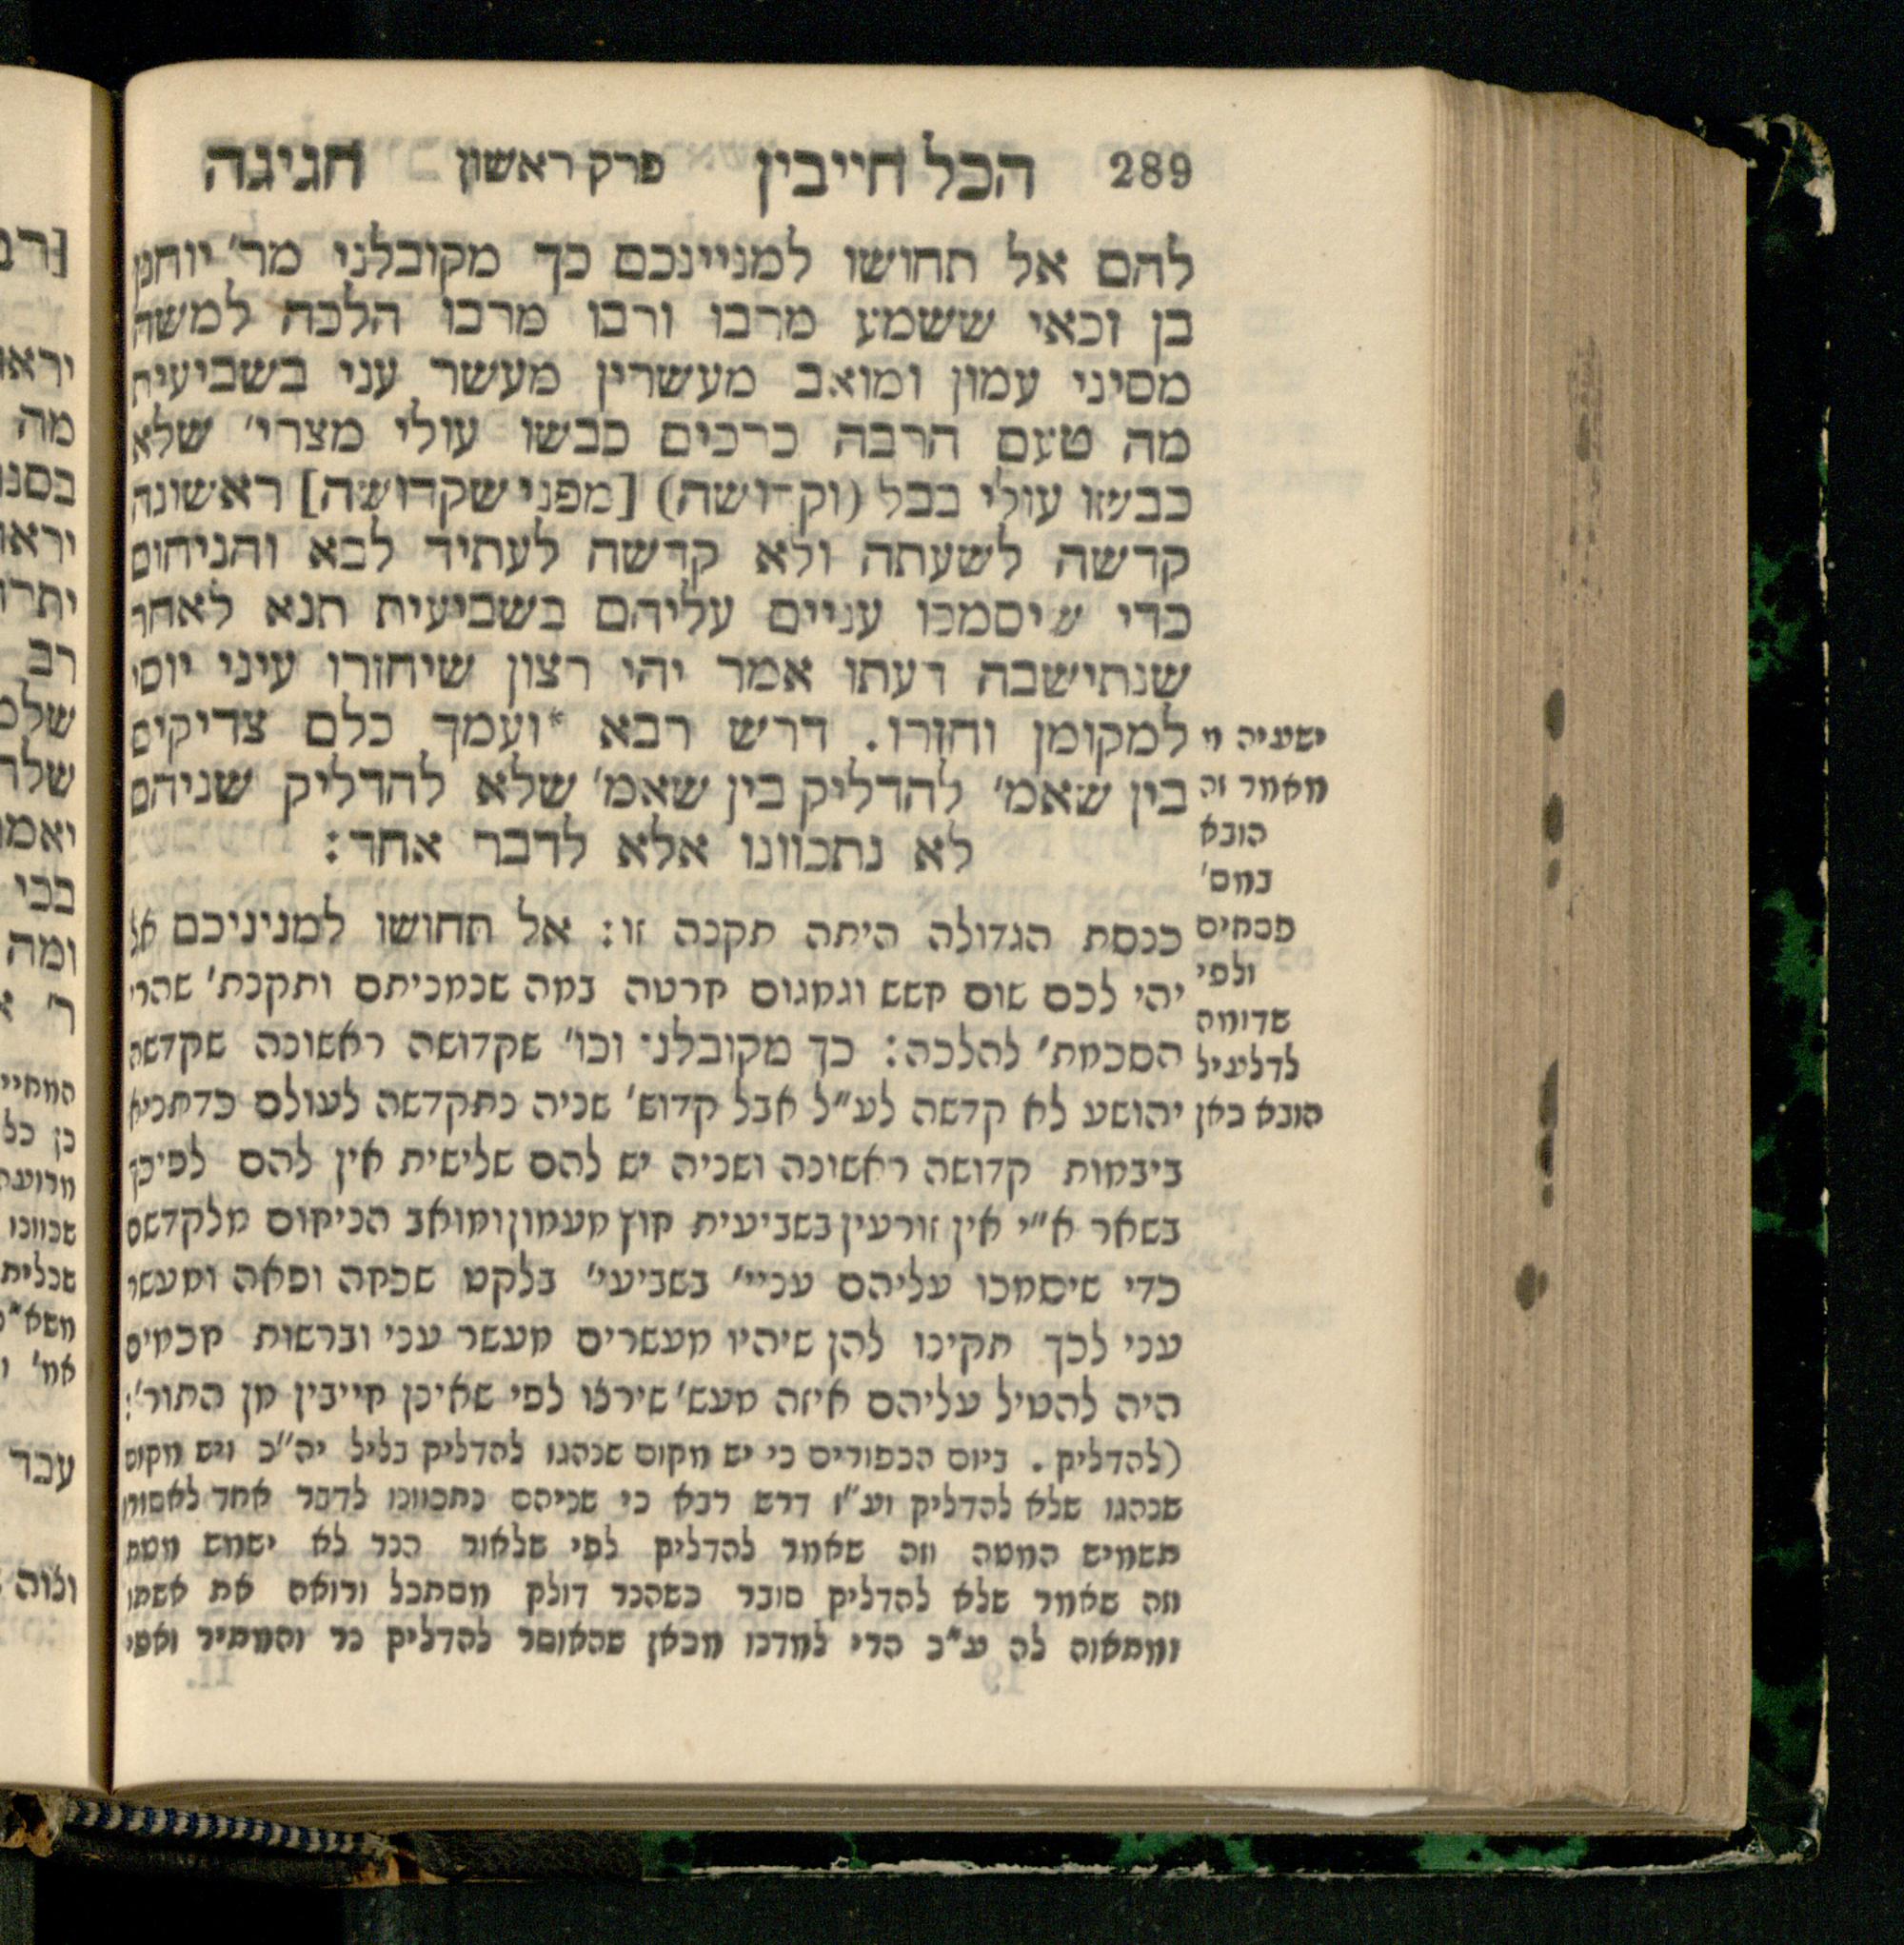 289 הכל חייבין פרק ראשון חגיגה
להם אל תחושו למניינכם כך מקובלני מר׳ יוחנן
בן זכאי ששמע מרבו ורבו מרבו הלכה למשה
מסיני עמון ומואב מעשרין מעשר עני בשביעית
מה טעם הרבה כרכים כבשו עולי מצרי׳ שלא
כבשו עולי בבל (וקדושה) [מפני שקדושה] ראשונה
קדשה לשעתה ולא קדשה לעתיד לבא והניחום
כדי שיסמכו עניים עליהם בשביעית תנא לאחר
שנתישבה דעתו אמר יהי רצון שיחזרו עיני יוסי
למקומן וחזרו. דרש רבא *ועמך כלם צדיקים
בין שאמ׳ להדליק בין שאמ׳ שלא להדליק שניהם
לא נתכוונו אלא לדבר אחד:
ישעיה ס
מאמר זה
הובא
במס׳
פסחים
ולפי
שדומה
לדלעיל
הובא כאן
כנסת הגדולה היתה תקנה זו: אל תחושו למניניכם אל
יהי לכם שום חשש וגמגום חרטה במה שנמניתם ותקנת׳ שהרי
הסכמת׳ להלכה: כך מקובלני וכו׳ שקדושה ראשונה שקדשה
יהושע לא קדשה לע״ל אבל קדוש׳ שניה נתקדשה לעולם כדתניא
ביבמות קדושה ראשונה ושניה יש להם שלישית אין להם לפיכך
בשאר א״י אין זורעין בשביעית חוץ מעמון ומואב הניחום מלקדשם
כדי שיסמכו עליהם עניי׳ בשביעי׳ בלקט שכחה ופאה ומעשר
עני לכך תקינו להן שיהיו מעשרים מעשר עני וברשות חכמים
היה להטיל עליהם איזה מעש׳ שירצו לפי שאינן חייבין מן התור׳:
(להדליק. ביום הכפורים כי יש מקום שנהגו להדליק בליל יה״כ ויש מקום
שנהגו שלא להדליק וע״ז דרש רבא כי שניהם נתכוונו לדבר אחד לאסור
תשמיש המטה וזה שאמר להדליק לפי שלאור הנר לא ישמש מטת
וזה שאמר שלא להדליק סובר כשהנר דולק מסתכל ורואה את אשתו
ומתאוה לה ע״כ הרי למדנו מכאן שהאוסר להדליק נר והמתיר ואפי